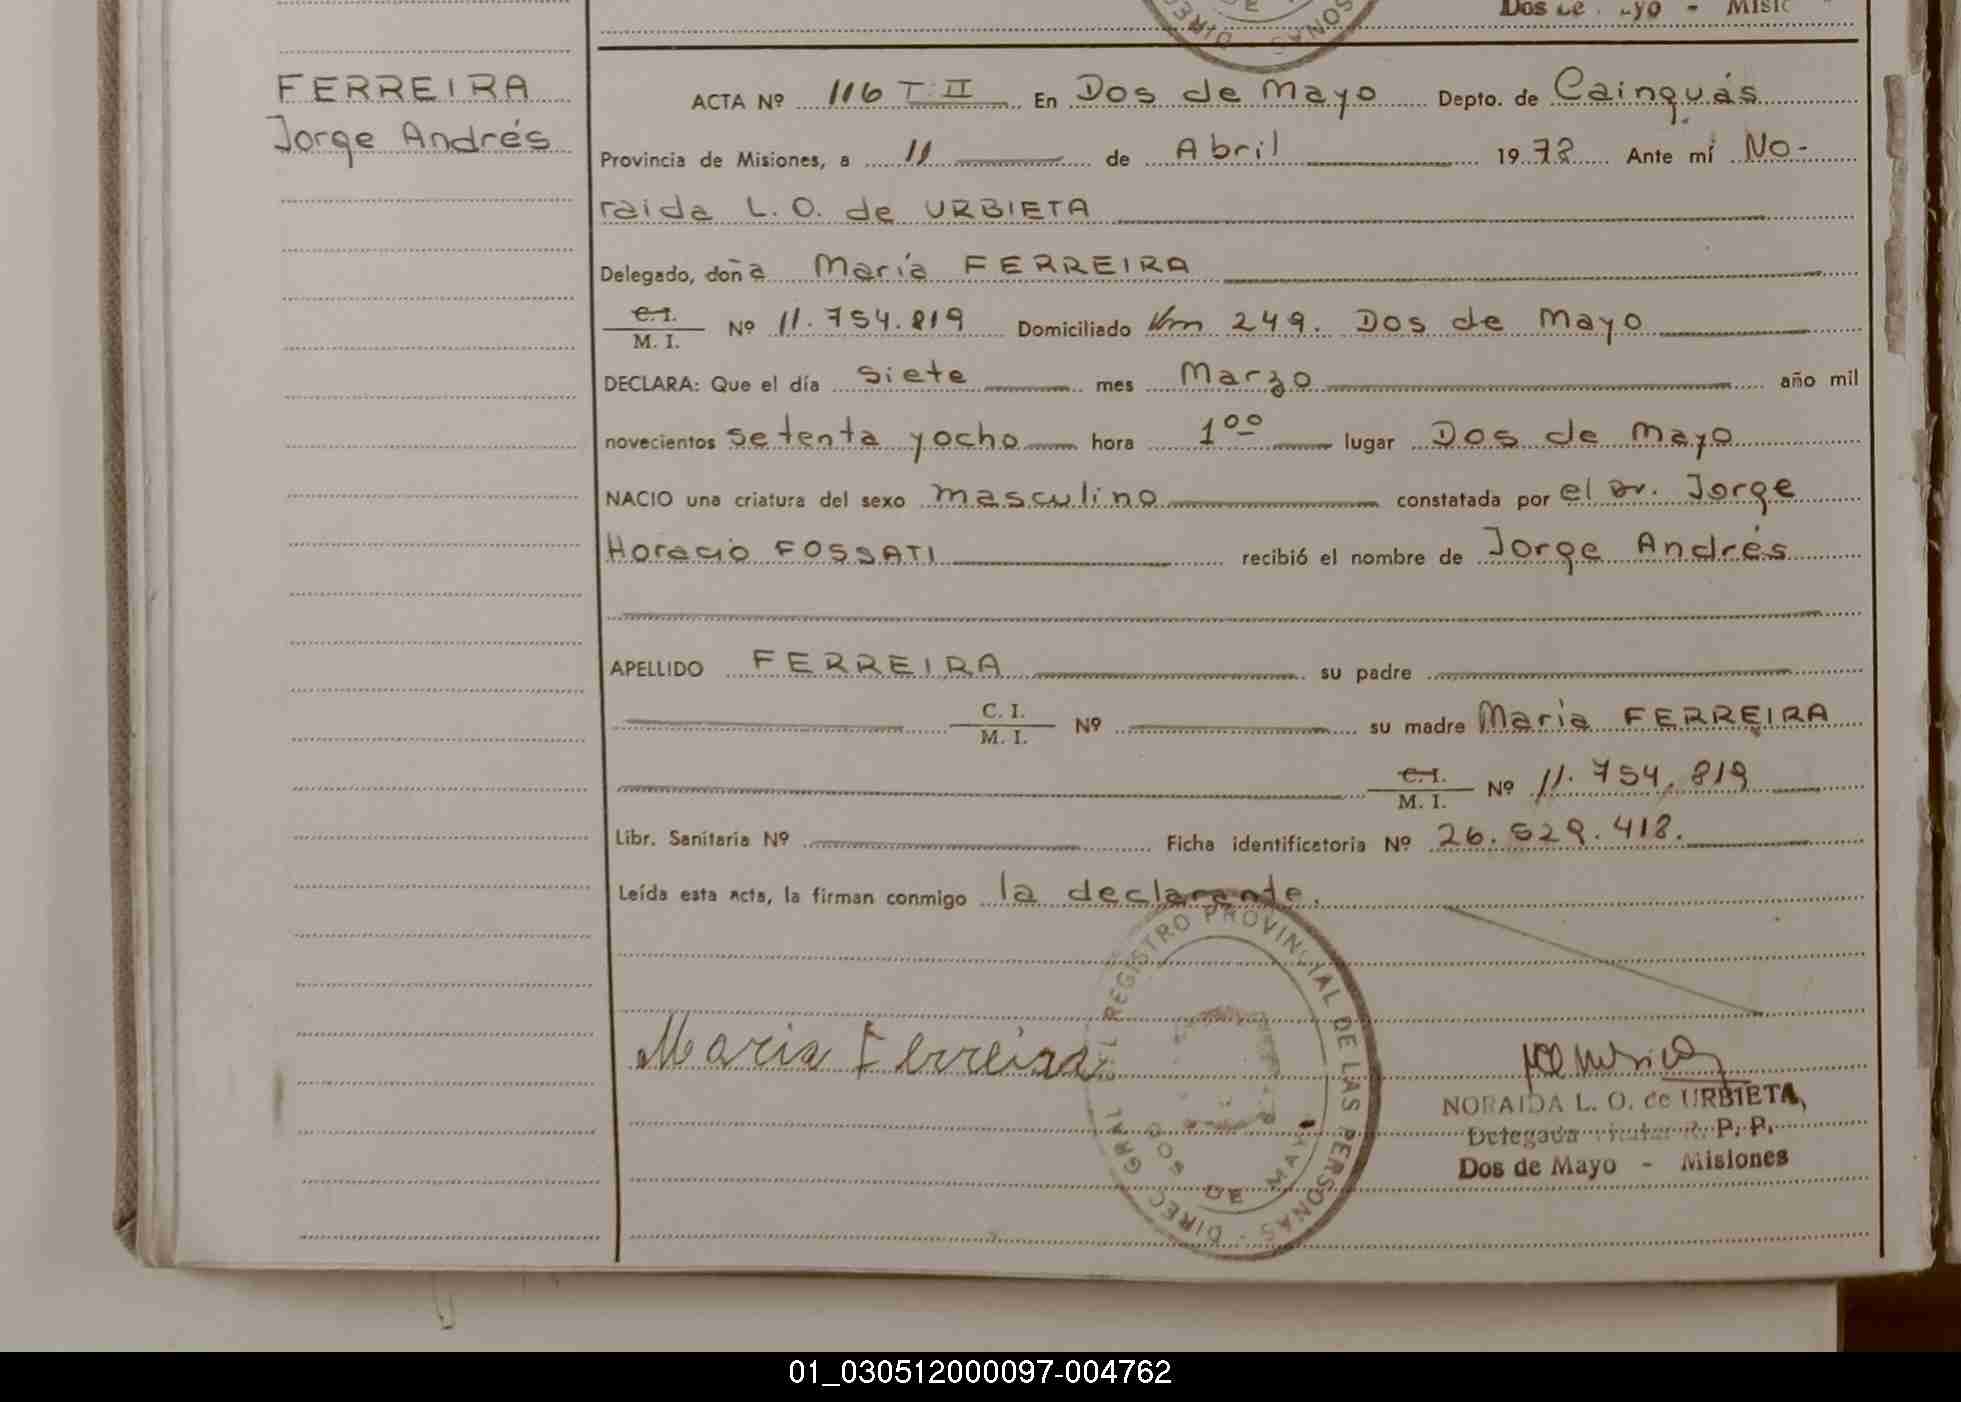 Dos de Mayo - Misio
DIREC
SONAS
DE
FERREIRA
Jorge Andrés
ACTA Nº 116 T: II En Dos de Mayo Depto. de Cainguás
Provincia de Misiones, a 11 de Abril 1978 Ante mí No-
raida L. O. de URBIETA
Delegado, doña María FERREIRA
C. I.
M. I. Nº 11.754.819 Domiciliado Km 249. Dos de Mayo
DECLARA: Que el día siete mes Marzo año mil
novecientos setenta y ocho hora 1 00 lugar Dos de Mayo
NACIO una criatura del sexo masculino constatada por el Dr. Jorge
Horacio FOSSATI recibió el nombre de Jorge Andrés
APELLIDO FERREIRA su padre
C. I.
M. I. Nº su madre María FERREIRA
C. I.
M. I. Nº 11.754.819
Libr. Sanitaria Nº Ficha identificatoria Nº 26.529.418.
Leída esta acta, la firman conmigo la declarante.
DIREC. GRAL. DEL REGISTRO PROVINCIAL DE LAS PERSONAS
DOS DE MAYO
Maria Ferreira
NORAIDA L. O. de URBIETA
Delegada Titular R. P. P.
Dos de Mayo - Misiones
01_030512000097-004762